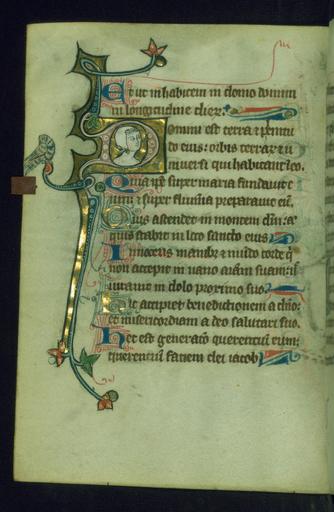 Et ut inhabitem in domo domini
in longitudine dierum
Domini est terra et plenitu
do eius: orbis terrarum et u
niversi qui habitant in eo.
Quia ipse super maria fundavit e
um: et super flumina preparavit eum.
Quis ascendet in montem domini: aut
quis stabit in loco sancto eius
Innocens manibus et mundo corde qui
non accepit in vano animam suam: nec
iuravit in dolo proximo suo.
Hic accipiet benedictionem a domino:
et misericordiam a deo salutari suo.
Hec est generatio querentium eum:
querentium faciem dei iacob